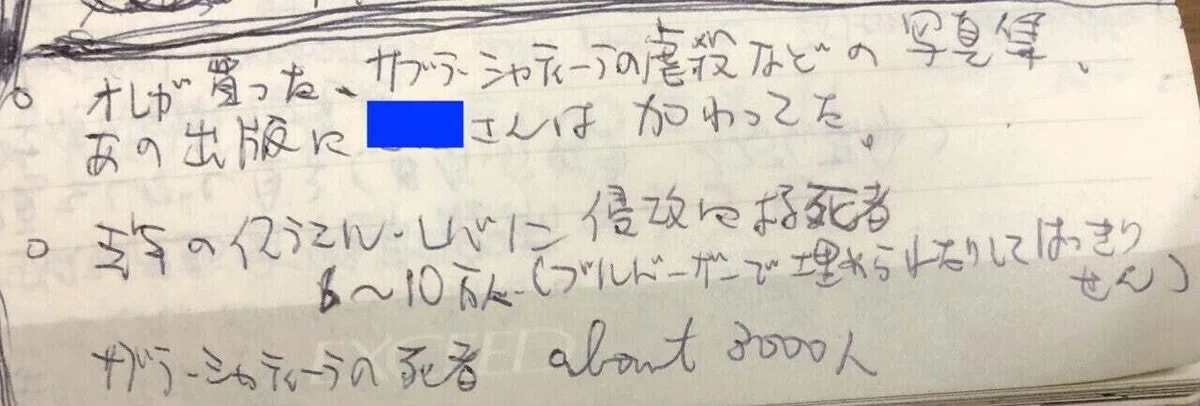 ○ オレが買った、サブラ・シャティーラの虐殺などの写真集、
あの出版に さんは加わってた。
○ 去年のイスラエル・レバノン侵攻による死者
6〜10万人（ブルドーザーで埋められたりしてはっきり
せん）
サブラ・シャティーラの死者 about 3000人